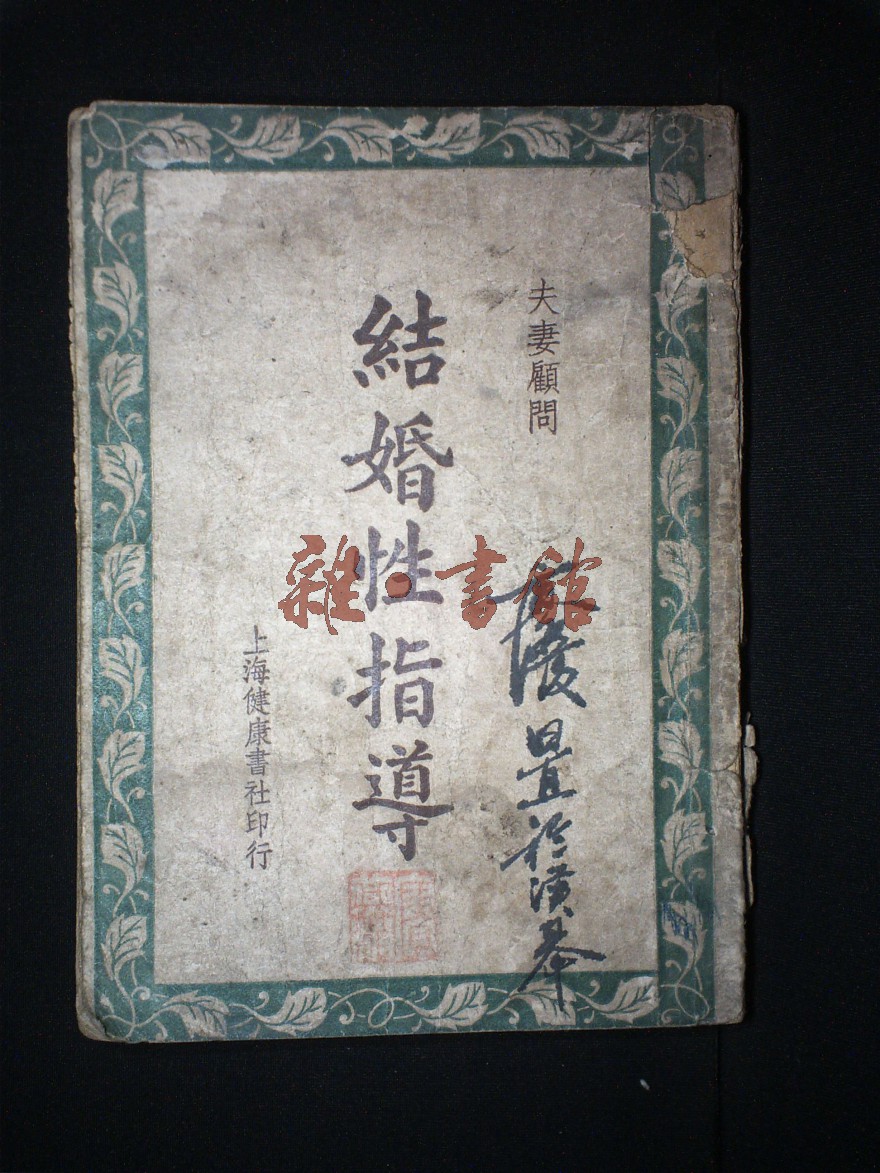 夫妻顧問
結婚性指導
上海健康書社印行
雜·書館
置於漢皋